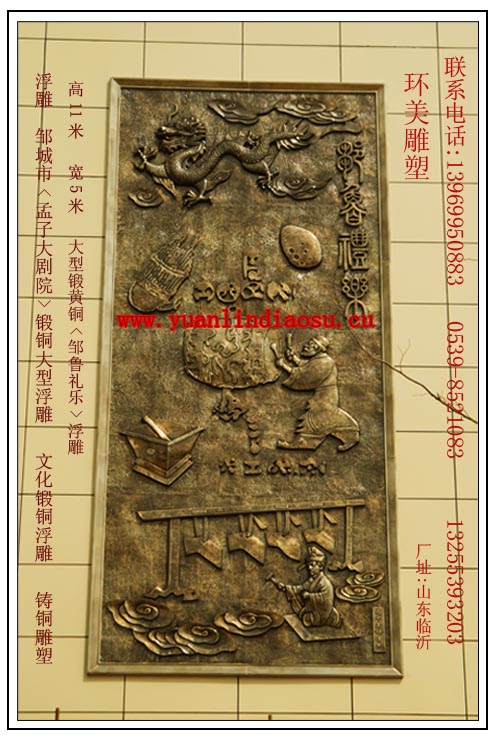 联系电话:13969950883 0539-8521083 13255393203
环美雕塑
厂址:山东临沂
鄒魯禮樂
www.yuanlindiaosu.cu
高11米 宽5米 大型锻黄铜<邹鲁礼乐>浮雕
浮雕 邹城市<孟子大剧院>锻铜大型浮雕 文化锻铜浮雕 铸铜雕塑